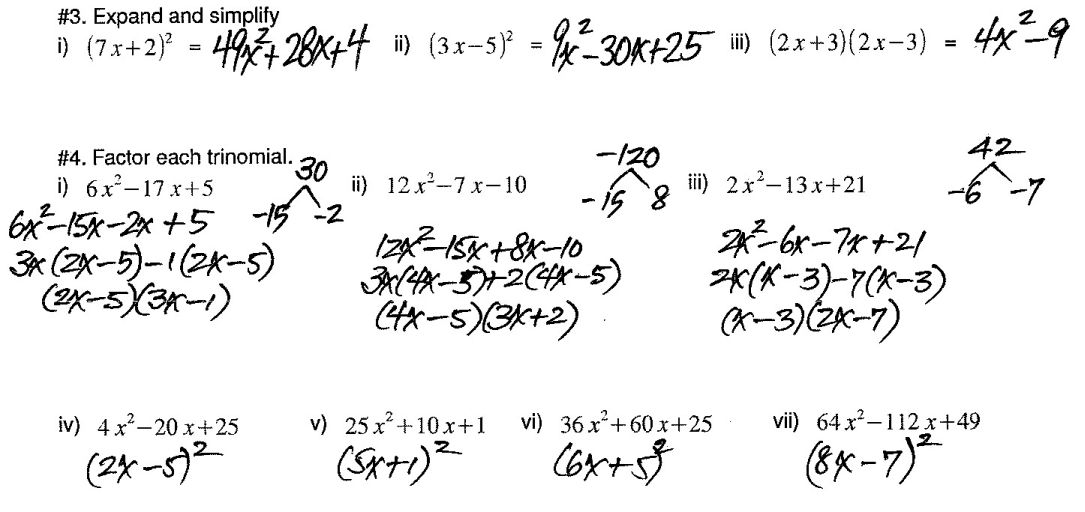 #3. Expand and simplify
i) (7x+2)² = 49x²+28x+4 ii) (3x−5)² = 9x²−30x+25 iii) (2x+3)(2x−3) = 4x²−9
#4. Factor each trinomial.
i) 6x²−17x+5
30
−15 −2
6x²−15x−2x+5
3x(2x−5)−1(2x−5)
(2x−5)(3x−1)
ii) 12x²−7x−10
−120
−15 8
12x²−15x+8x−10
3x(4x−5)+2(4x−5)
(4x−5)(3x+2)
iii) 2x²−13x+21
42
−6 −7
2x²−6x−7x+21
2x(x−3)−7(x−3)
(x−3)(2x−7)
iv) 4x²−20x+25 v) 25x²+10x+1 vi) 36x²+60x+25 vii) 64x²−112x+49
(2x−5)² (5x+1)² (6x+5)² (8x−7)²